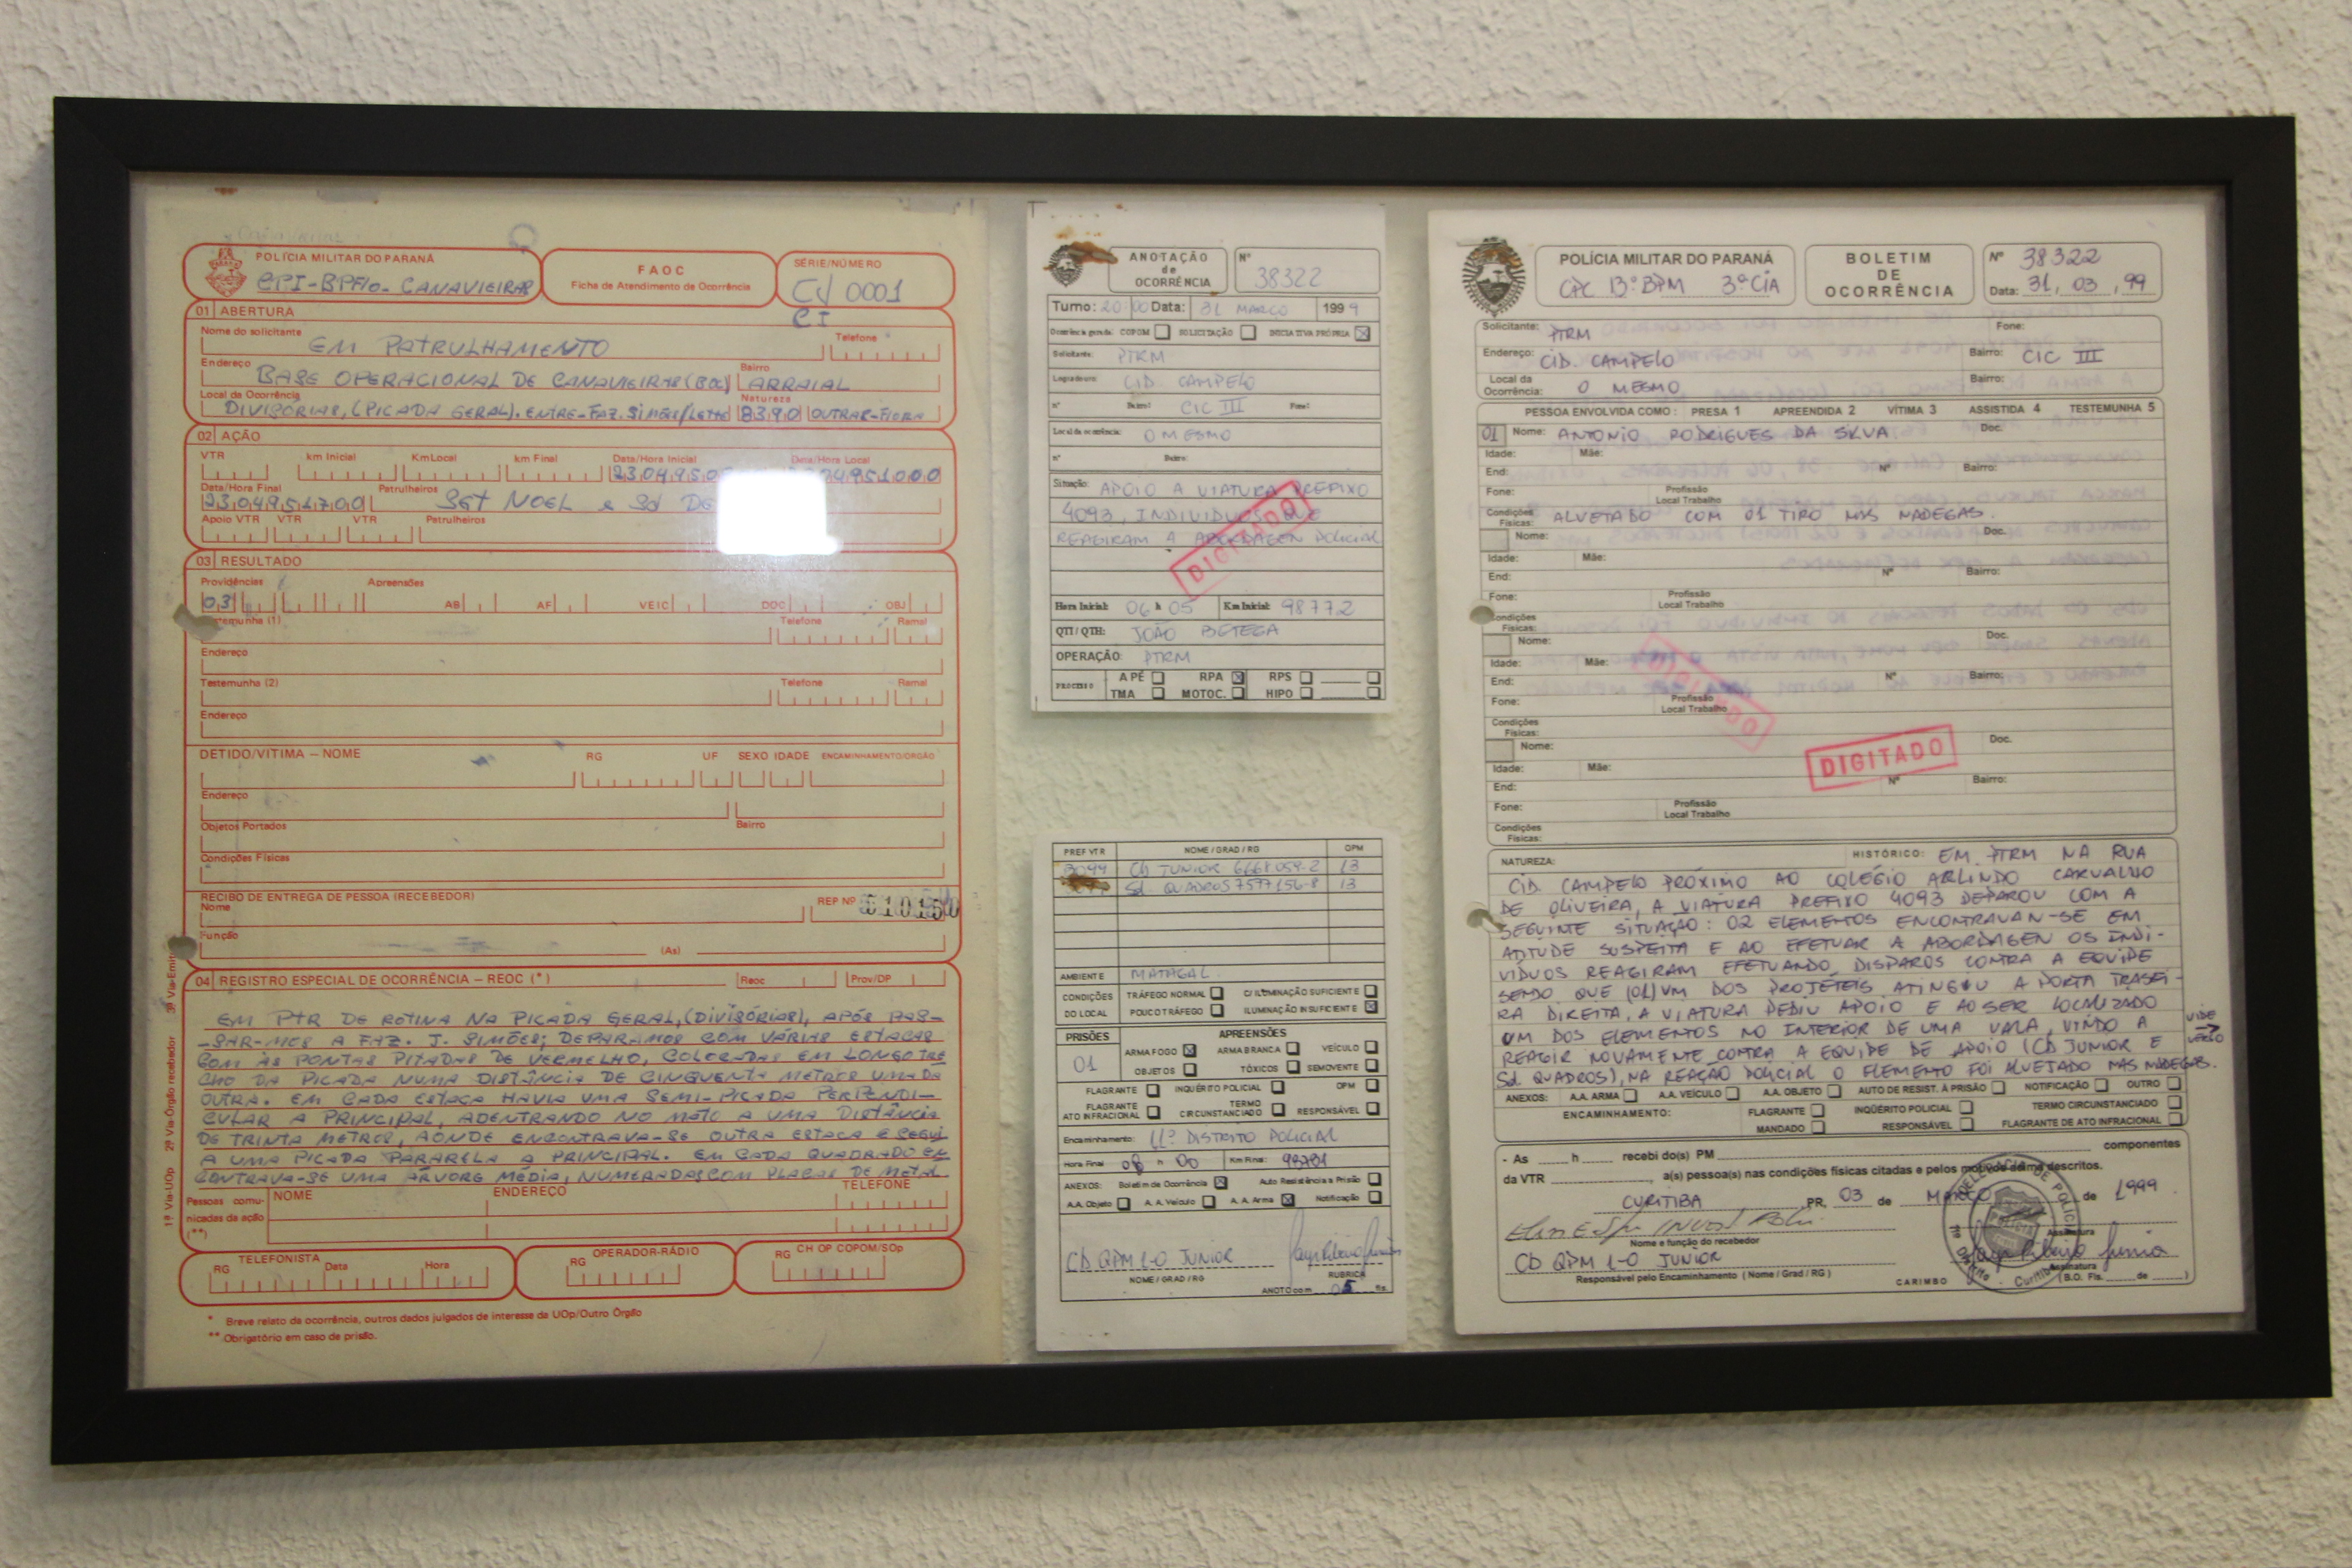 POLÍCIA MILITAR DO PARANÁ
CPI-BPFlo- CANAVIEIRAS
FAOC
Ficha de Atendimento de Ocorrência
SÉRIE/NÚMERO
0001
01 ABERTURA
Nome do solicitante Telefone
EM PATRULHAMENTO
Endereço Bairro
BASE OPERACIONAL DE CANAVIEIRAS (BOC) ARRAIAL
Local da Ocorrência Natureza
DIVISÓRIAS, (PICADA GERAL). ENTRE-FAZ. SIMÕES/LEITE 8390 OUTRAS-FLORA
02 AÇÃO
VTR km Inicial Km Local km Final Data/Hora Inicial Data/Hora Local
Data/Hora Final Patrulheiros
2304951700 SGT NOEL e Sd DE
Apoio VTR VTR VTR Patrulheiros
03 RESULTADO
Providências Apreensões
03 AB AF VEIC DOC OBJ
Testemunha (1) Telefone Ramal
Endereço
Testemunha (2) Telefone Ramal
Endereço
DETIDO/VÍTIMA – NOME RG UF SEXO IDADE ENCAMINHAMENTO/ORGÃO
Endereço
Objetos Portados Bairro
Condições Físicas
RECIBO DE ENTREGA DE PESSOA (RECEBEDOR)
Nome REP Nº
Função (As)
04 REGISTRO ESPECIAL DE OCORRÊNCIA – REOC (*) Reoc Prov/DP
EM PTR DE ROTINA NA PICADA GERAL, (DIVISÓRIAS), APÓS PAS-
-SAR-MOS A FAZ. J. SIMÕES; DEPARAMOS COM VÁRIAS ESTACAS
COM AS PONTAS PITADAS DE VERMELHO, COLOCADAS EM LONGO TRE
CHO DA PICADA NUMA DISTÂNCIA DE CINQUENTA METROS UMA DA
OUTRA. EM CADA ESTACA HAVIA UMA SEMI-PICADA PERPENDI-
CULAR A PRINCIPAL, ADENTRANDO NO MATO A UMA DISTÂNCIA
DE TRINTA METROS, AONDE ENCONTRAVA-SE OUTRA ESTACA E SEGUI
A UMA PICADA PARARELA A PRINCIPAL. EM CADA QUADRADO EN
CONTRAVA-SE UMA ÁRVORE MÉDIA, NUMERADAS COM PLACAS DE METAL
Pessoas comu- NOME ENDEREÇO TELEFONE
nicadas da ação
(**)
TELEFONISTA
RG Data Hora
OPERADOR-RÁDIO
RG
RG CH OP COPOM/SOp
* Breve relato da ocorrência, outros dados julgados de interesse da UOp/Outro Órgão
** Obrigatório em caso de prisão.
1ª Via-UOp 2ª Via-Órgão recebedor
ANOTAÇÃO
de
OCORRÊNCIA
Nº 38322
Turno: 20:00 Data: 31 MARÇO 1999
Ocorrência gerada: COPOM SOLICITAÇÃO INICIATIVA PRÓPRIA
Solicitante: PTRM
Logradouro: CID. CAMPELO
nº Bairro: CIC III Fone:
Local da ocorrência: O MESMO
nº Bairro:
Situação: APOIO A VIATURA PREFIXO
4093, INDIVIDUOS QUE
REAGIRAM A ABORDAGEM POLICIAL
DIGITADO
Hora Inicial: 06 h 05 Km Inicial: 98772
QTI / QTH: JOÃO BETEGA
OPERAÇÃO: PTRM
PROCESSO A PÉ RPA RPS
TMA MOTOC. HIPO
PREF VTR NOME / GRAD / RG OPM
Cb JUNIOR 6668.059-2 13
Sd. QUADROS 7577156-8 13
AMBIENTE MATAGAL
CONDIÇÕES TRÁFEGO NORMAL C/ ILUMINAÇÃO SUFICIENTE
DO LOCAL POUCO TRÁFEGO ILUMINAÇÃO INSUFICIENTE
PRISÕES APREENSÕES
01 ARMA FOGO ARMA BRANCA VEÍCULO
OBJETOS TÓXICOS SEMOVENTE
FLAGRANTE INQUÉRITO POLICIAL OPM
FLAGRANTE ATO INFRACIONAL TERMO CIRCUNSTANCIADO RESPONSÁVEL
Encaminhamento: 11º DISTRITO POLICIAL
Hora Final 08 h 00 Km Final: 98781
ANEXOS: Boletim de Ocorrência Auto Resistência a Prisão
A.A. Objeto A. A. Veículo A. A. Arma Notificação
CB QPM 1-0 JUNIOR
NOME / GRAD / RG RUBRICA
ANOTO com 05 fls.
POLÍCIA MILITAR DO PARANÁ
CPC 13º BPM 3ª CIA
BOLETIM
DE
OCORRÊNCIA
Nº 38322
Data: 31, 03, 99
Solicitante: PTRM Fone:
Endereço: CID. CAMPELO Bairro: CIC III
Local da Ocorrência: O MESMO Bairro:
PESSOA ENVOLVIDA COMO: PRESA 1 APREENDIDA 2 VÍTIMA 3 ASSISTIDA 4 TESTEMUNHA 5
01 Nome: ANTONIO RODRIGUES DA SILVA Doc.
Idade: Mãe:
End: Nº Bairro:
Fone: Profissão Local Trabalho
Condições Físicas: ALVETADO COM 01 TIRO NAS NADEGAS.
Nome: Doc.
Idade: Mãe:
End: Nº Bairro:
Fone: Profissão Local Trabalho
Condições Físicas:
Nome: Doc.
Idade: Mãe:
End: Nº Bairro:
Fone: Profissão Local Trabalho
Condições Físicas:
Nome: Doc.
DIGITADO
DIGITADO
Idade: Mãe:
End: Nº Bairro:
Fone: Profissão Local Trabalho
Condições Físicas:
NATUREZA: HISTÓRICO: EM PTRM NA RUA
CID. CAMPELO PRÓXIMO AO COLÉGIO ARLINDO CARVALHO
DE OLIVEIRA, A VIATURA PREFIXO 4093 DEPAROU COM A
SEGUINTE SITUAÇÃO: 02 ELEMENTOS ENCONTRAVAN-SE EM
ATITUDE SUSPEITA E AO EFETUAR A ABORDAGEN OS INDI-
VÍDUOS REAGIRAM EFETUANDO DISPAROS CONTRA A EQUIPE
SENDO QUE (01) UM DOS PROJÉTEIS ATINGIU A PORTA TRASEI-
RA DIREITA, A VIATURA PEDIU APOIO E AO SER LOCALIZADO
UM DOS ELEMENTOS NO INTERIOR DE UMA VALA, VINDO A
REAGIR NOVAMENTE CONTRA A EQUIPE DE APOIO (CB JUNIOR E
Sd. QUADROS), NA REAÇÃO POLICIAL O ELEMENTO FOI ALVETADO NAS NADEGAS.
VIDE
VERSO
ANEXOS: A.A. ARMA A.A. VEÍCULO A.A. OBJETO AUTO DE RESIST. À PRISÃO NOTIFICAÇÃO OUTRO
ENCAMINHAMENTO: FLAGRANTE INQUÉRITO POLICIAL TERMO CIRCUNSTANCIADO
MANDADO RESPONSÁVEL FLAGRANTE DE ATO INFRACIONAL
- As h recebi do(s) PM componentes
da VTR , a(s) pessoa(s) nas condições físicas citadas e pelos motivos acima descritos.
CURITIBA PR, 03 de MARÇO de 1999
Nome e função do recebedor Assinatura
CB QPM 1-0 JUNIOR
Responsável pelo Encaminhamento ( Nome / Grad / RG ) CARIMBO Assinatura
(B.O. Fls. de )